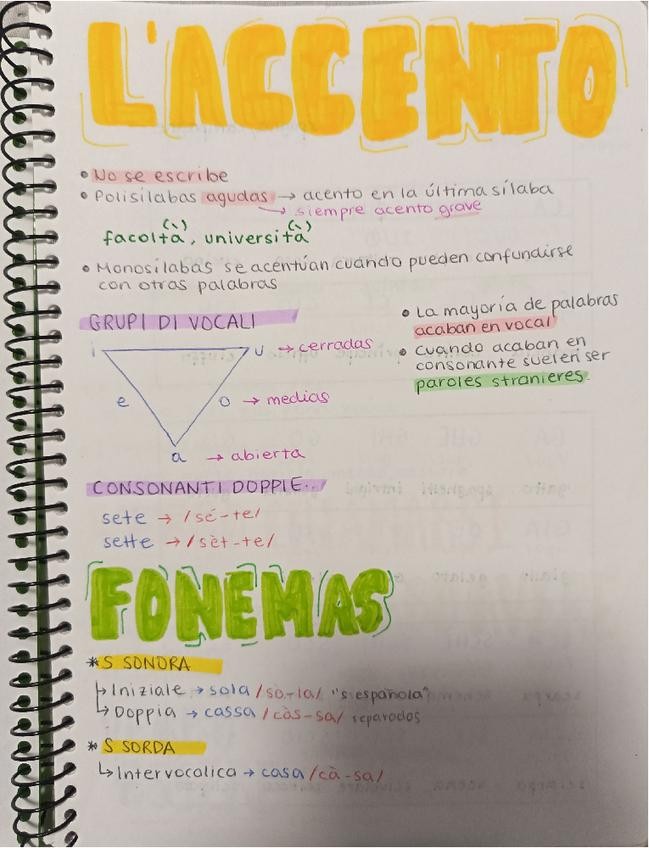 L'ACCENTO
• No se escribe
• Polisílabas agudas → acento en la última sílaba
→ siempre acento grave
facoltà, università
(`) (`)
• Monosílabas se acentúan cuando pueden confundirse
con otras palabras
GRUPI DI VOCALI
i u → cerradas
e o → medias
a → abierta
• La mayoría de palabras
acaban en vocal
• Cuando acaban en
consonante suelen ser
paroles stranieres.
CONSONANTI DOPPLE...
sete → /sé-te/
sette → /sèt-te/
FONEMAS
* S SONORA
↳ Iniziale → sola /sò-la/ "s española"
↳ Doppia → cassa /càs-sa/ separadas
* S SORDA
↳ Intervocalica → casa /cà-sa/